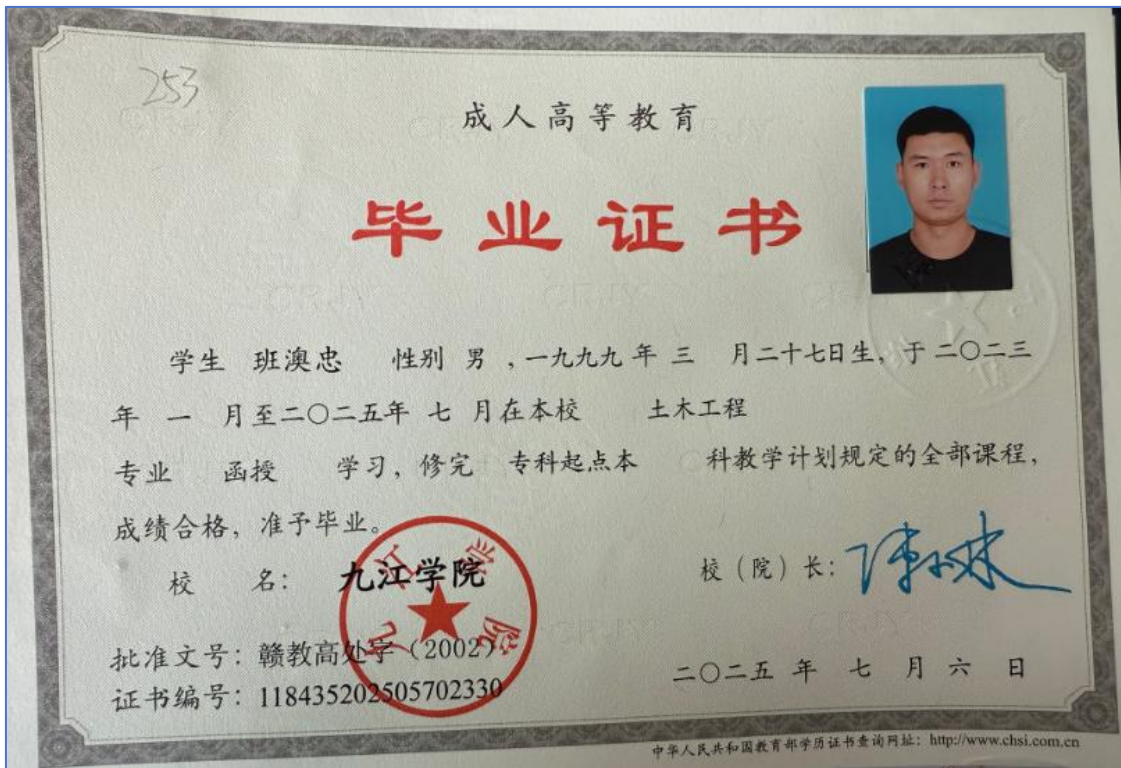 253
成人高等教育
毕业证书
学生 班澳忠 性别 男 ,一九九九 年 三 月二十七日生, 于 二〇二三
年 一 月至二〇二五年 七 月在本校 土木工程
专业 函授 学习, 修完 专科起点本 科教学计划规定的全部课程,
成绩合格, 准予毕业。
校 名: 九江学院
九江学院
校 (院) 长:
批准文号: 赣教高处字 (2002)
二〇二五 年 七 月 六 日
证书编号: 118435202505702330
中华人民共和国教育部学历证书查询网址: http://www.chsi.com.cn